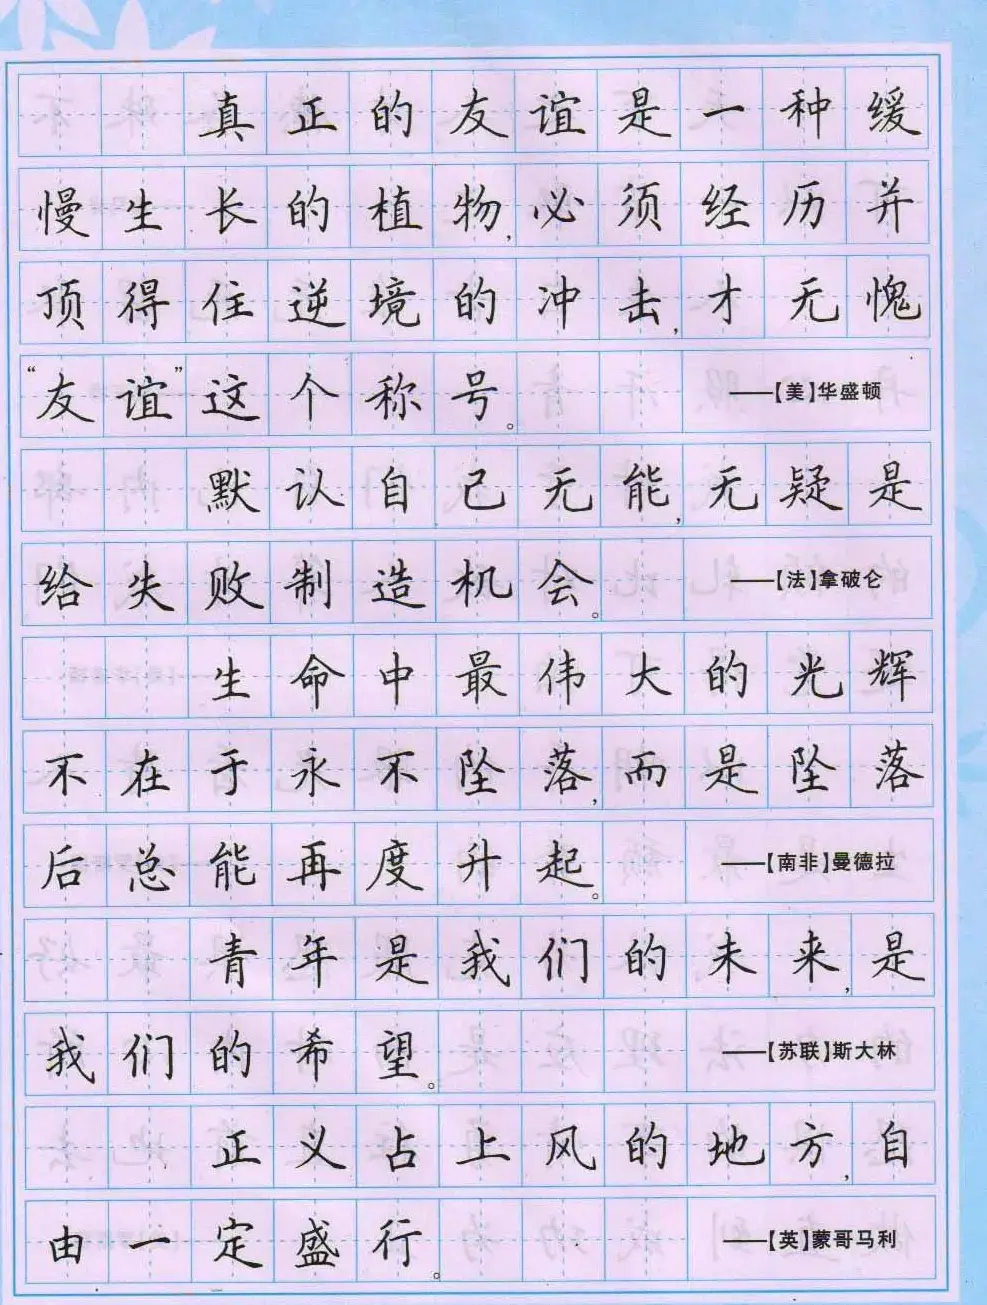 真正的友谊是一种缓
慢生长的植物,必须经历并
顶得住逆境的冲击,才无愧
“友谊”这个称号。——【美】华盛顿
默认自己无能,无疑是
给失败制造机会。——【法】拿破仑
生命中最伟大的光辉
不在于永不坠落,而是坠落
后总能再度升起。——【南非】曼德拉
青年是我们的未来,是
我们的希望。——【苏联】斯大林
正义占上风的地方,自
由一定盛行。——【英】蒙哥马利